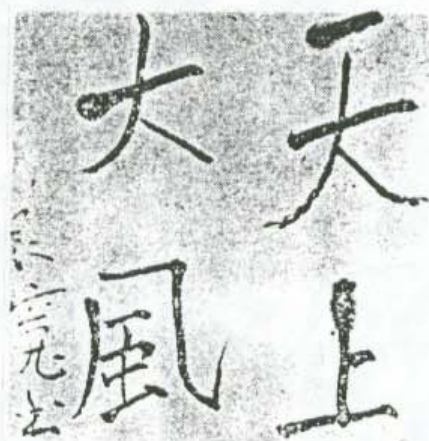 天上
大風